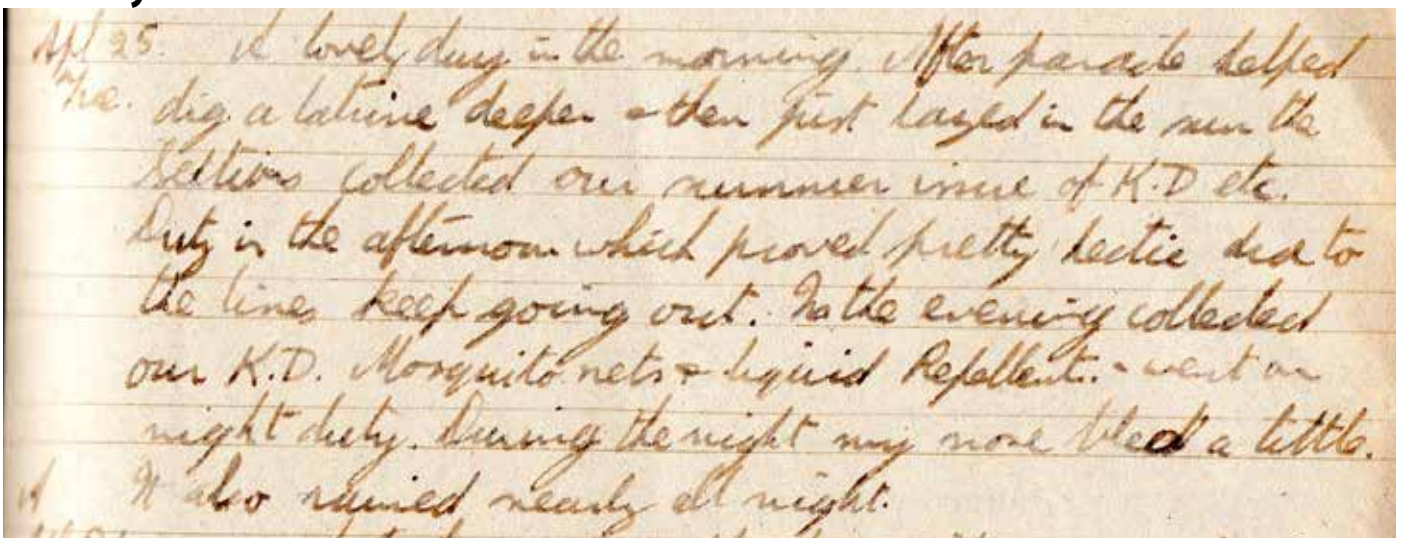 Apl 25. A lovely day in the morning. After parade helped
dig a latrine deeper & then just lazed in the sun the
Section collected our summer issue of K.D etc.
Duty in the afternoon which proved pretty hectic due to
the lines keep going out. In the evening collected
our K.D. Mosquito nets & liquid Repellent. & went on
night duty. During the night my nose bled a little.
It also rained nearly all night.